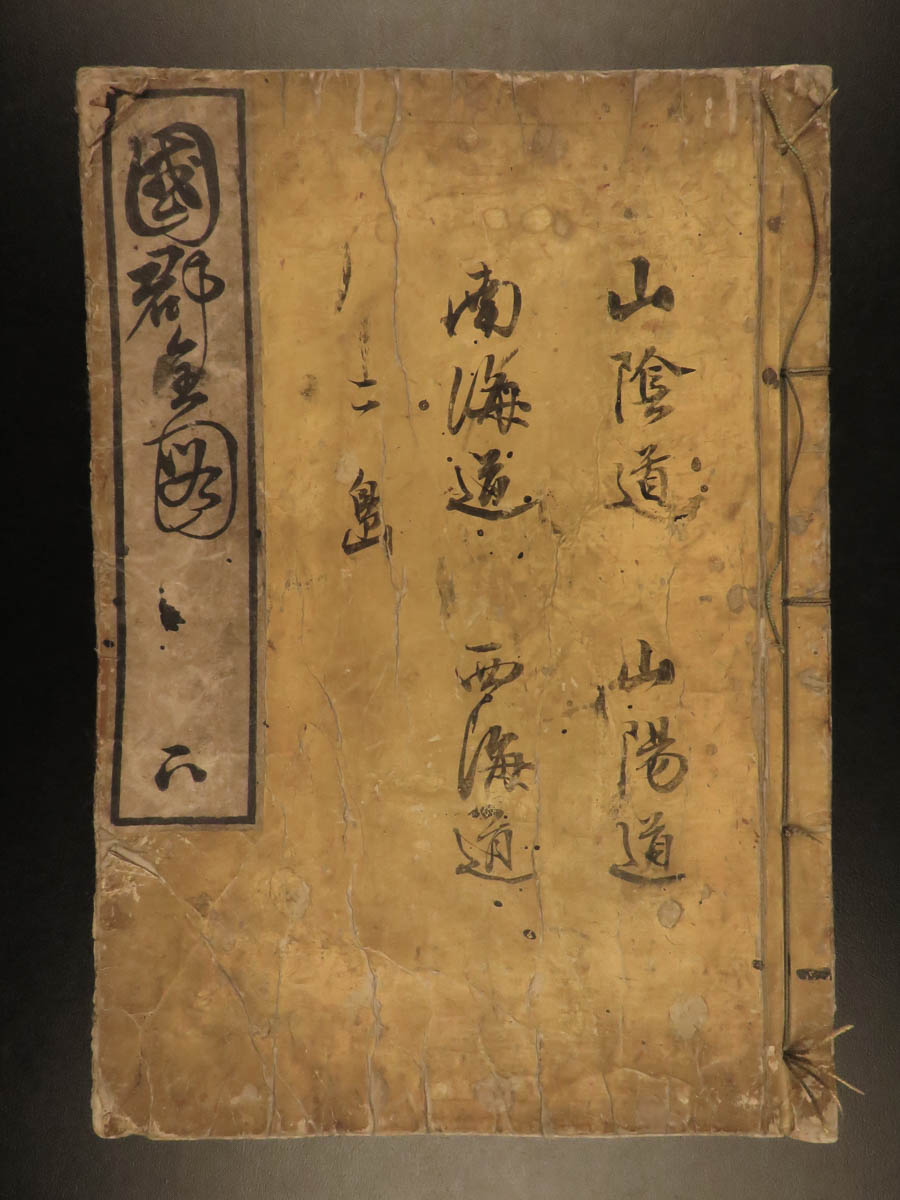 山陰道 山陽道
南海道 西海道
二島
國郡全圖 下